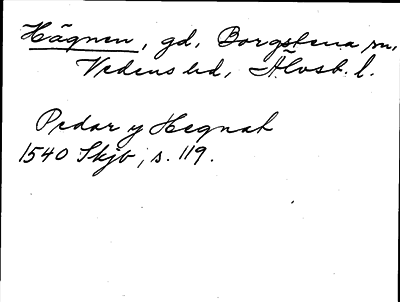 Hägnen, gd, Borgstena sn,
Vedens hd, Älvsb. l.
Pedar y Hegnat
1540 Skjb, s. 119.